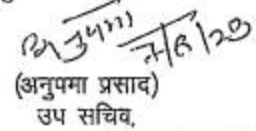 अनुपमा
(अनुपमा प्रसाद)
उप सचिव,